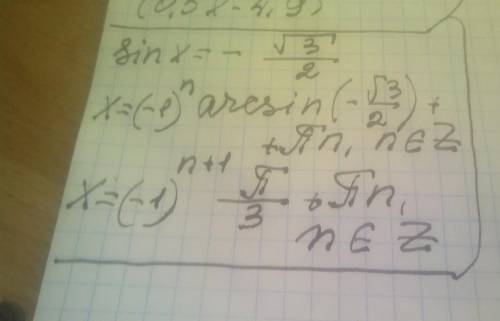 (0,5x-4,9)
sin x = - √3/2
x=(-1)^n arcsin(-√3/2)+
+πn, n∈Z
x=(-1)^(n+1) π/3 + πn,
n∈Z